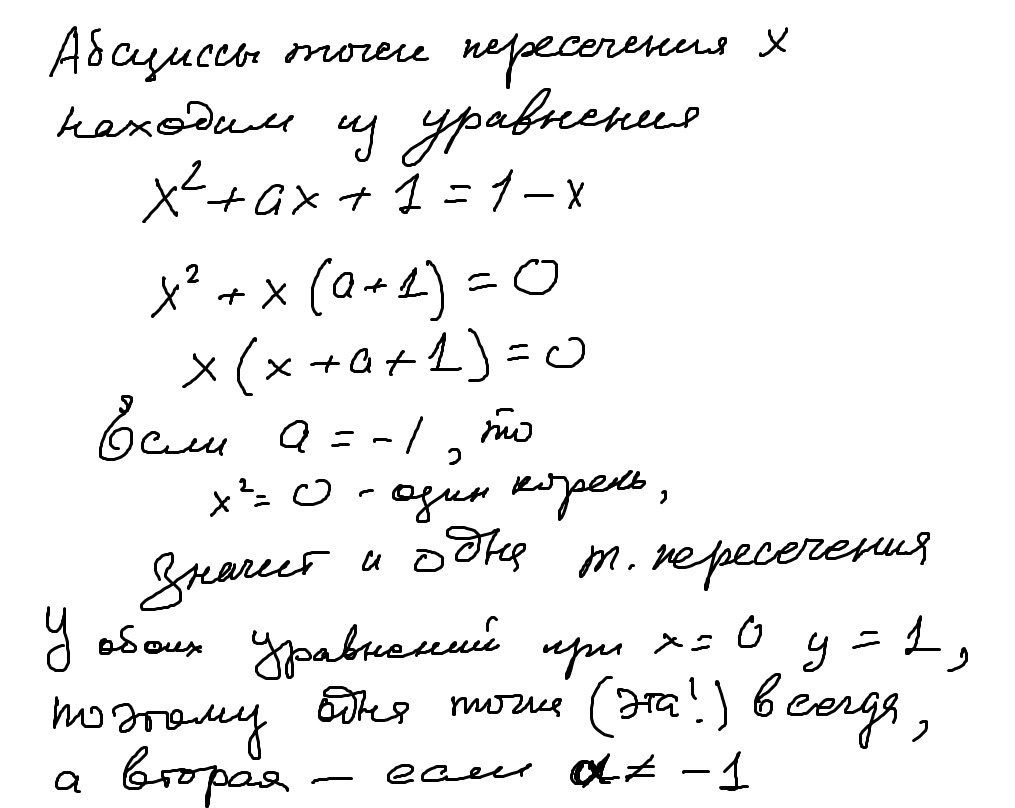 Абсциссы точек пересечения x
находим из уравнения
x² + ax + 1 = 1 − x
x² + x (a+1) = 0
x (x + a + 1) = 0
Если a = -1, то
x² = 0 - один корень,
значит и одна т. пересечения
У обоих уравнений при x = 0 y = 1,
поэтому одна точка (эта!) всегда,
а вторая — если a ≠ −1